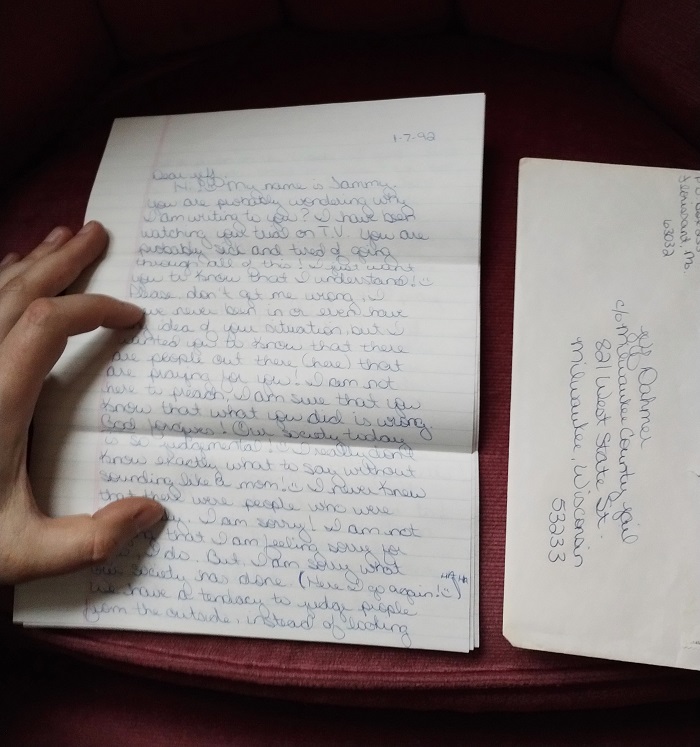 1-7-92
Dear Jeff,
Hi. My name is Sammy.
you are probably wondering why
I am writing to you? I have been
watching your trial on T.V. You are
probably sick and tired of going
through all of this! I just want
you to know that I understand!
Please don't get me wrong, I
never been in or even have
idea of your situation, but I
wanted you to know that there
are people out there (here) that
are praying for you! I am not
here to preach, I am sure that you
know that what you did is wrong.
God forgives! Our society today
is so judgmental! I really don't
know exactly what to say without
sounding like a mom! I never knew
that there were people who were
I am sorry! I am not
that I am feeling sorry for
I do. But, I am sorry what
our society has done (Here I go again! HA HA)
We have a tendacy to judge people
from the outside, instead of looking
Florissant, Mo.
63032
Jeff Dahmer
c/o Milwaukee County jail
821 West State St.
Milwaukee, Wisconsin
53233